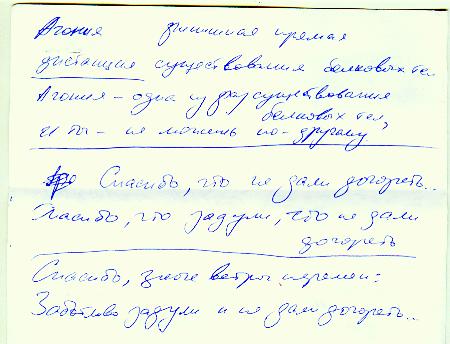 Агония финишная прямая
дистанция существования белковых тел
Агония - одна из фаз существования
белковых тел,
и ты - не можешь по-другому.
Спасибо, что не дали догореть..
Спасибо, что задули, что не дали
догореть
Спасибо, злые ветры перемен:
Заботливо задули и не дали догореть..